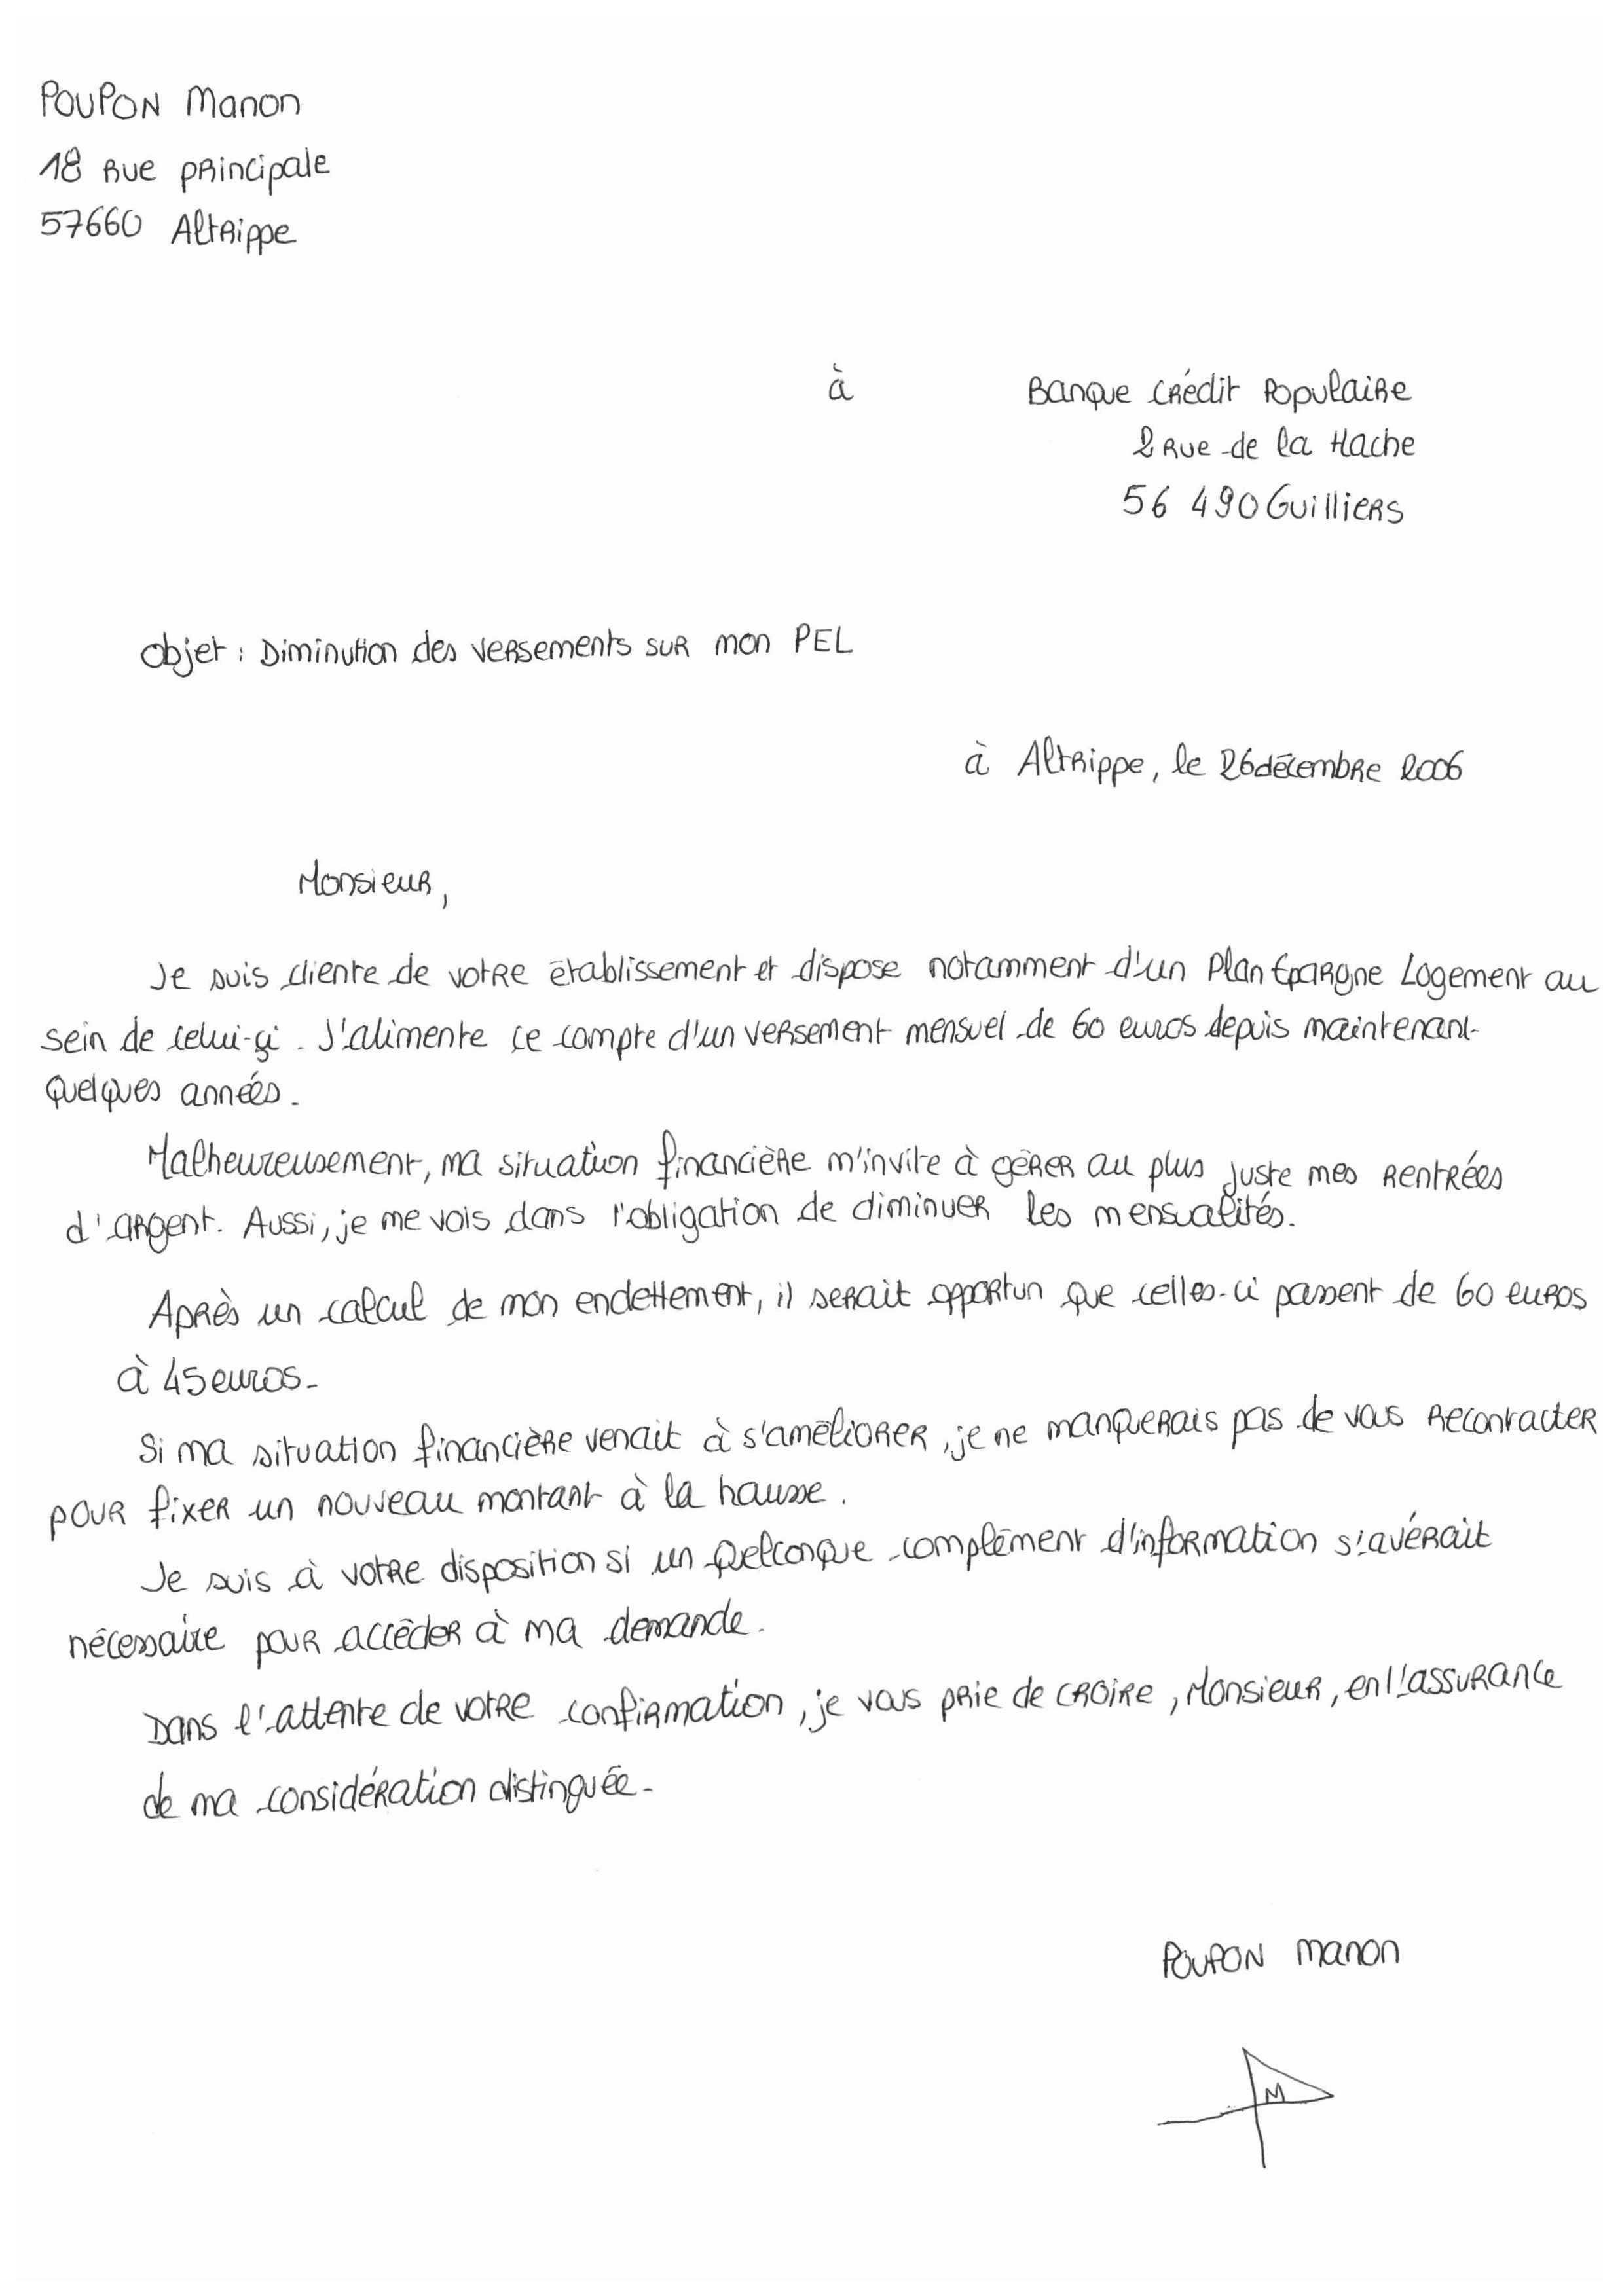 POUPON Manon
18 Rue principale
57660 Altrippe
à Banque Crédit Populaire
2 Rue de la Hache
56 490 Guilliers
Objet : Diminution des versements sur mon PEL
à Altrippe, le 26 décembre 2006
Monsieur,
Je suis cliente de votre établissement et dispose notamment d'un Plan Epargne Logement au
sein de celui-çi. J'alimente ce compte d'un versement mensuel de 60 euros depuis maintenant
quelques années.
Malheureusement, ma situation financière m'invite à gérer au plus juste mes rentrées
d'argent. Aussi, je me vois dans l'obligation de diminuer les mensualités.
Après un calcul de mon endettement, il serait opportun que celles-ci passent de 60 euros
à 45 euros.
Si ma situation financière venait à s'améliorer, je ne manquerais pas de vous recontacter
pour fixer un nouveau montant à la hausse.
Je suis à votre disposition si un quelconque complément d'information s'avérait
nécessaire pour accéder à ma demande.
Dans l'attente de votre confirmation, je vous prie de croire, Monsieur, en l'assurance
de ma considération distinguée.
POUPON Manon
M